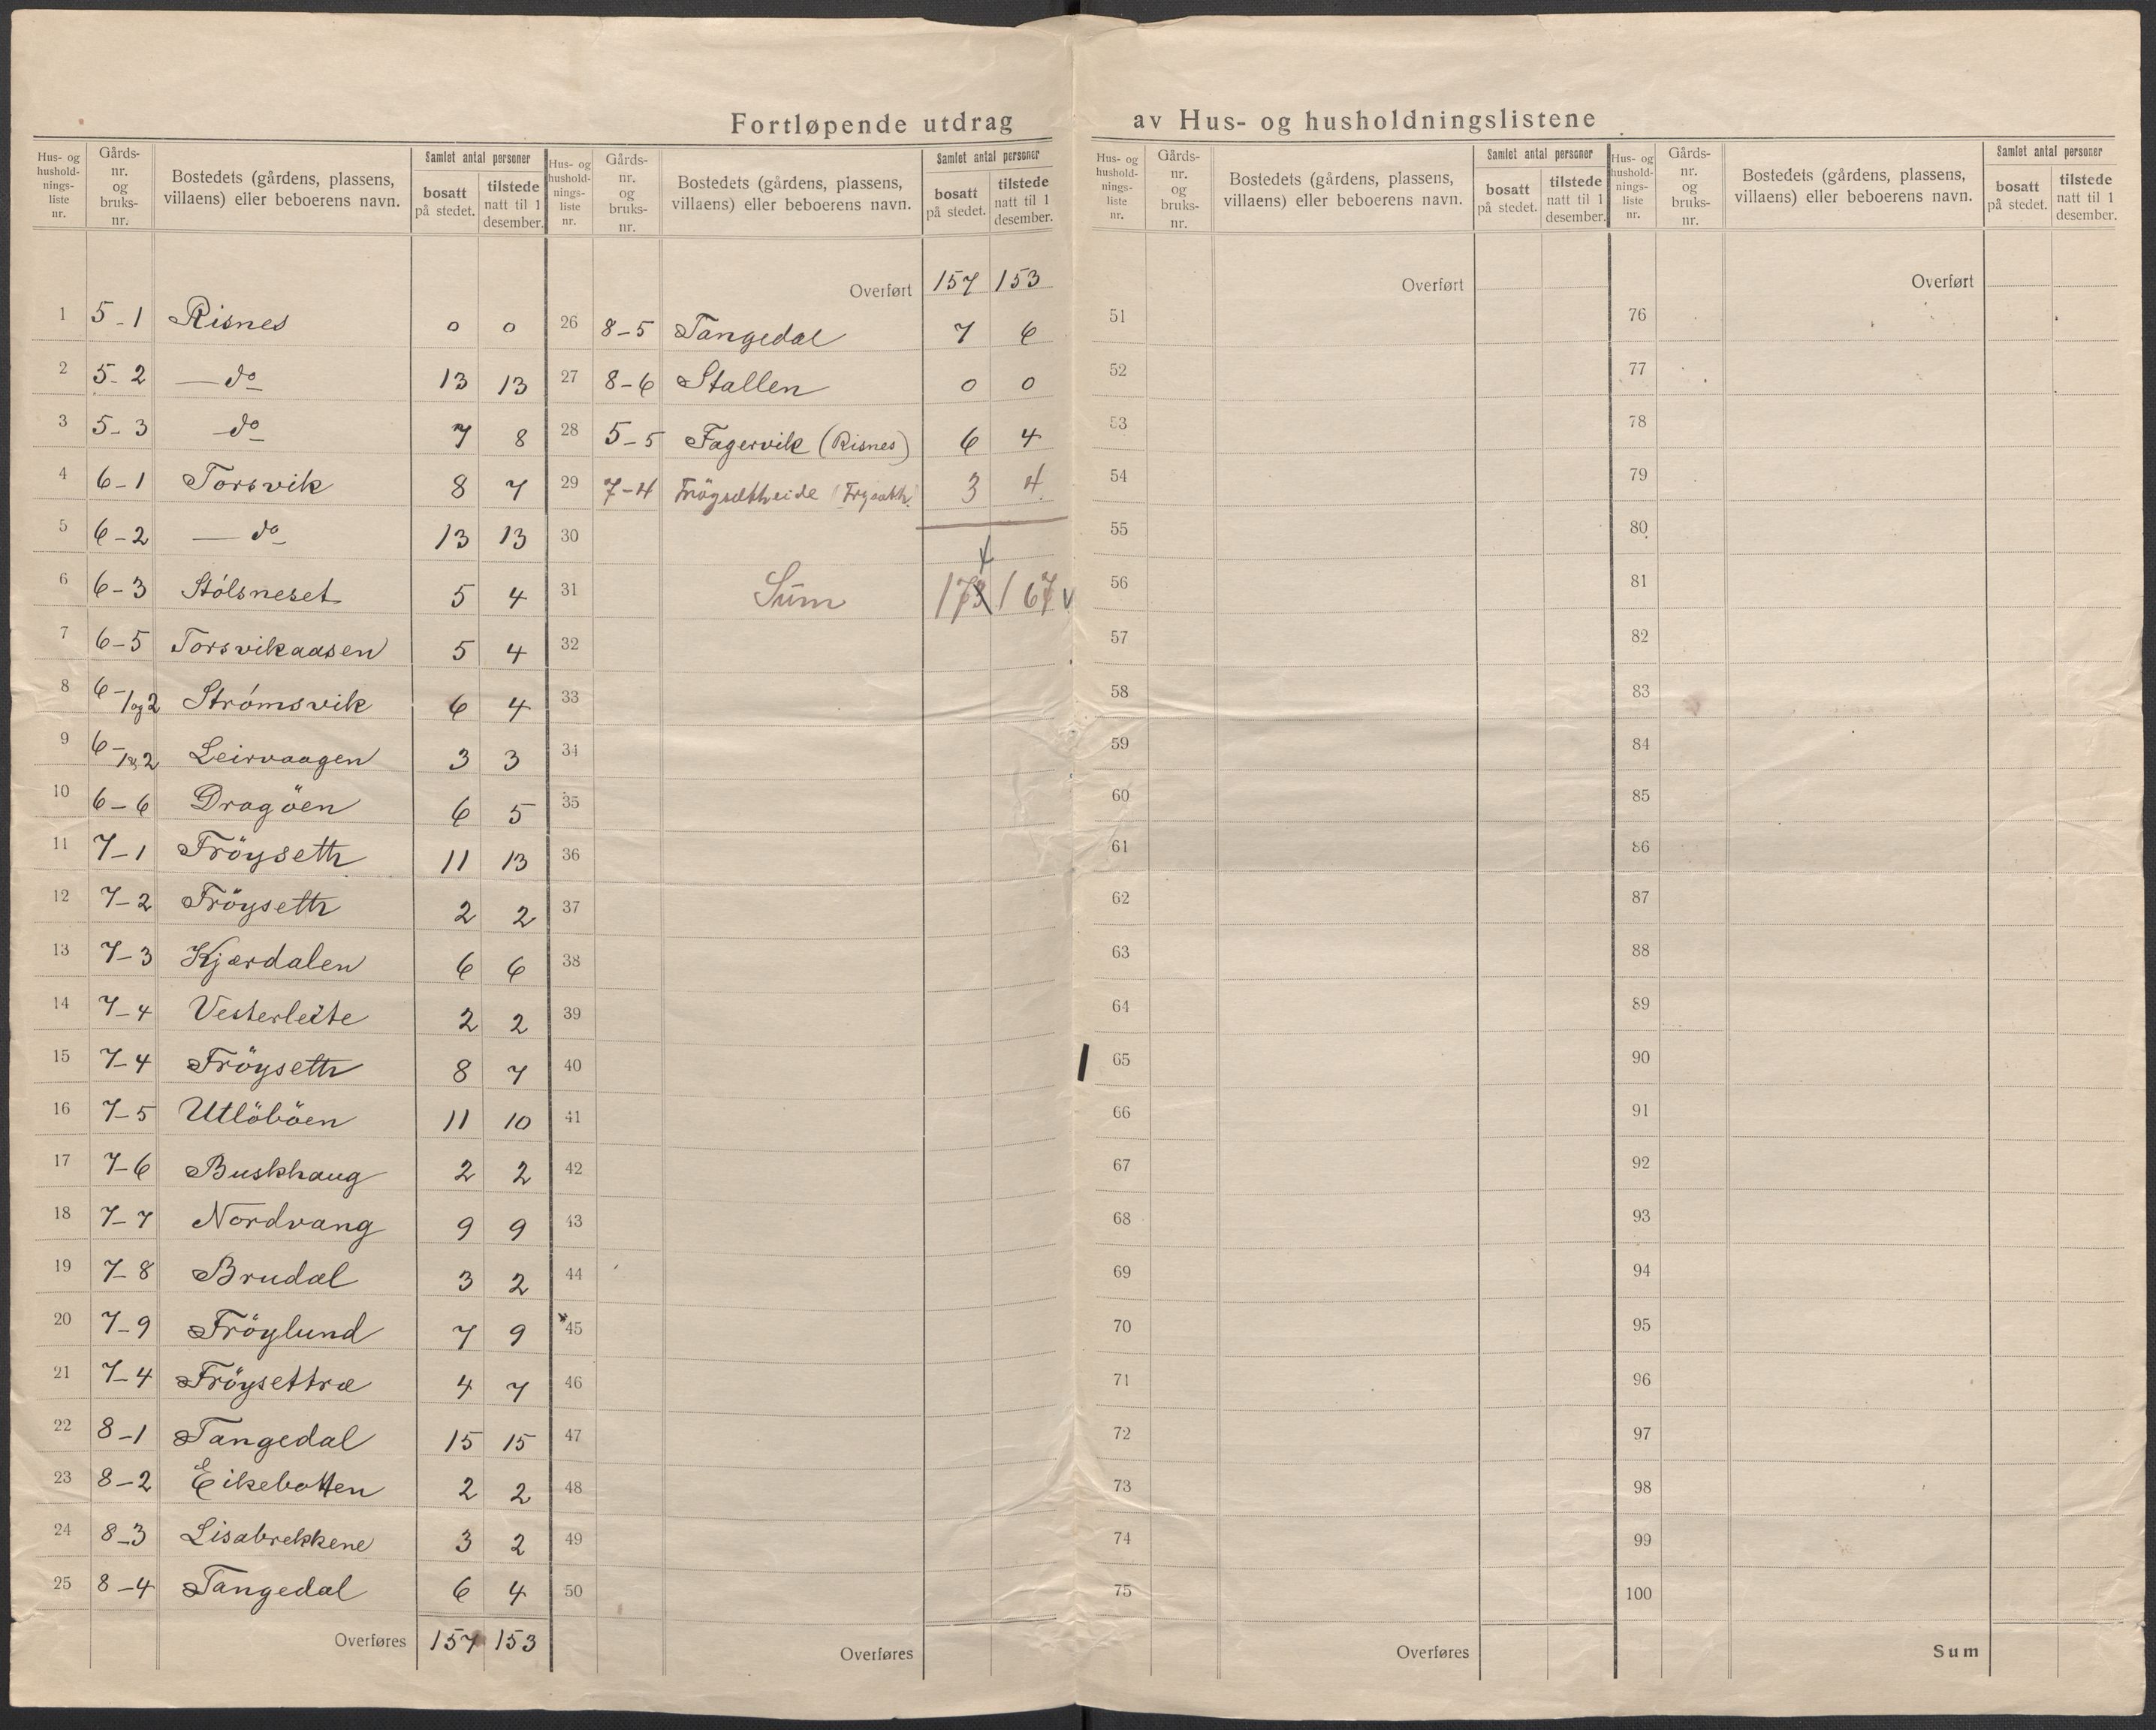 Fortløpende utdrag av Hus- og husholdningslistene
Hus- og hushold-nings-liste nr. Gårds-nr. og bruks-nr. Bostedets (gårdens, plassens, villaens) eller beboerens navn. Samlet antal personer bosatt på stedet. tilstede natt til 1 desember.
1 5-1 Risnes 0 0
2 5-2 — do 13 13
3 5-3 do 7 8
4 6-1 Torsvik 8 7
5 6-2 — do 13 13
6 6-3 Stólsneset 5 4
7 6-5 Torsvikaasen 5 4
8 6-1og2 Strömsvik 6 4
9 6-1&2 Leirvaagen 3 3
10 6-6 Dragöen 6 5
11 7-1 Fröyseth 11 13
12 7-2 Fröyseth 2 2
13 7-3 Kjærdalen 6 6
14 7-4 Vesterleite 2 2
15 7-4 Fröyseth 8 7
16 7-5 Utlöböen 11 10
17 7-6 Buskhaug 2 2
18 7-7 Nordvang 9 9
19 7-8 Brudal 3 2
20 7-9 Fröylund 7 9
21 7-4 Fröysettræ 4 7
22 8-1 Tangedal 15 15
23 8-2 Eikebotten 2 2
24 8-3 Lisabrekkene 3 2
25 8-4 Tangedal 6 4
Overføres 157 153
Hus- og hushold-nings-liste nr. Gårds-nr. og bruks-nr. Bostedets (gårdens, plassens, villaens) eller beboerens navn. Samlet antal personer bosatt på stedet. tilstede natt til 1 desember.
Overført 157 153
26 8-5 Tangedal 7 6
27 8-6 Stallen 0 0
28 5-5 Fagervik (Risnes) 6 4
29 7-4 3 4
30
31 Sum 173 167
32
33
34
35
36
37
38
39
40
41
42
43
44
45
46
47
48
49
50
Overføres
Hus- og hushold-nings-liste nr. Gårds-nr. og bruks-nr. Bostedets (gårdens, plassens, villaens) eller beboerens navn. Samlet antal personer bosatt på stedet. tilstede natt til 1 desember.
Overført
51
52
53
54
55
56
57
58
59
60
61
62
63
64
65
66
67
68
69
70
71
72
73
74
75
Overføres
Hus- og hushold-nings-liste nr. Gårds-nr. og bruks-nr. Bostedets (gårdens, plassens, villaens) eller beboerens navn. Samlet antal personer bosatt på stedet. tilstede natt til 1 desember.
Overført
76
77
78
79
80
81
82
83
84
85
86
87
88
89
90
91
92
93
94
95
96
97
98
99
100
Sum